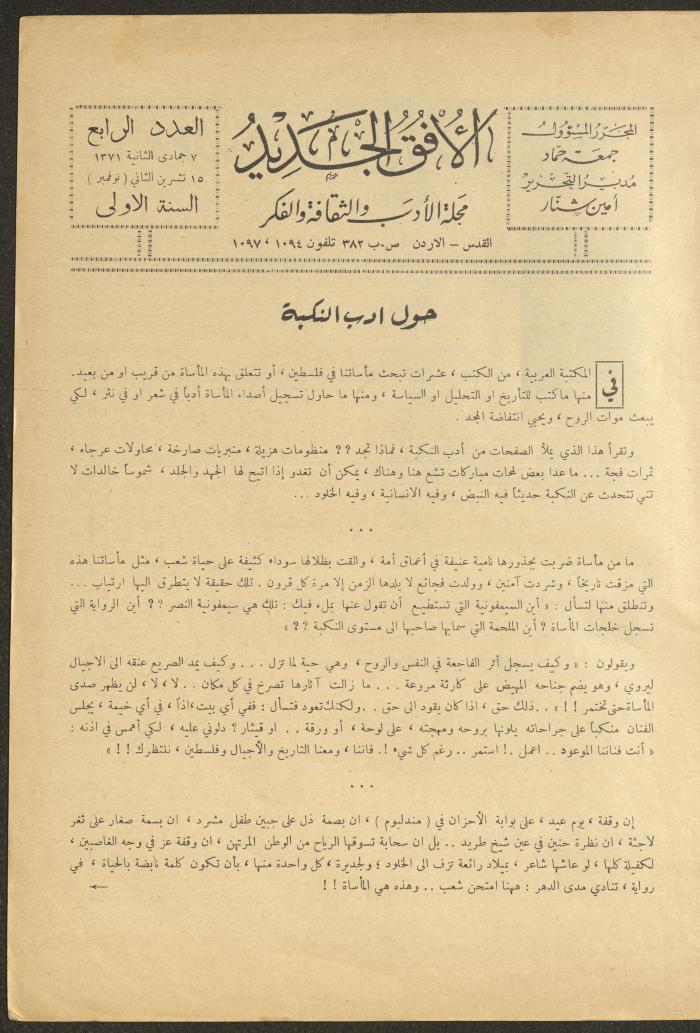 المحرر المسؤول
جمعة حماد
مدير التحرير
أمين شنار
الأفق الجديد
مجلة الأدب والثقافة والفكر
القدس – الاردن ص.ب ٣٨٢ تلفون ١٠٩٤ ، ١٠٩٧
العدد الرابع
٧ جمادى الثانية ١٣٧١
١٥ تشرين الثاني ( نوفمبر )
السنة الاولى
حول ادب النكبة
في المكتبة العربية ، من الكتب ، عشرات تبحث مأساتنا في فلسطين ، أو تتعلق بهذه المأساة من قريب او من بعيد.
منها ماكتب للتأريخ او التحليل او السياسة ، ومنها ما حاول تسجيل أصداء المأساة أدباً في شعر او في نثر ، لكي
يبعث موات الروح ، ويحيي انتفاضة المجد .
وتقرأ هذا الذي يملأ الصفحات من أدب النكبة ، فماذا تجد ؟؟ منظومات هزيلة ، منبريات صارخة ، محاولات عرجاء ،
ثمرات فجة ... ما عدا بعض لمحات مباركات تشع هنا وهناك ، يمكن أن تغدو إذا اتيح لها الجهد والجلد ، شموساً خالدات لا
تني تتحدث عن النكبة حديثاً فيه النبض ، وفيه الانسانية ، وفيه الخلود ...
...
ما من مأساة ضربت بجذورها نامية عنيفة في أعماق أمة ، والقت بظلالها سوداء كثيفة على حياة شعب ، مثل مأساتنا هذه
التي مزقت تاريخاً ، وشردت آمنين ، وولدت فجائع لا يلدها الزمن إلا مرة كل قرون . تلك حقيقة لا يتطرق اليها ارتياب ...
وتنطلق منها لتسأل : « أين السيمفونية التي تستطيع أن تقول عنها بملء فيك : تلك هي سيمفونية النصر ؟؟ أين الرواية التي
تسجل خلجات المأساة ؟ أين الملحمة التي سمايها صاحبها الى مستوى النكبة ؟؟ »
ويقولون : « وكيف يسجل أثر الفاجعة في النفس والروح ، وهي حية لما تزل ... وكيف يمد الصريع عنقه الى الاجيال
ليروي ، وهو يضم جناحه المهيض على كارثة مروعة ... ما زالت آثارها تصرخ في كل مكان .. لا ، لا ، لن يظهر صدى
المأساة حتى تختمر !! » .. ذلك حق ، اذا كان يقود الى حق .. ولكنك تعود فتسأل : ففي أي بيت ،اذاً ، في أي خيمة ، يجلس
الفنان منكباً على جراحاته يلونها بروحه ومهجته ، على لوحة ، أو ورقة .. او قيثار ؟ دلوني عليه ، لكي أهمس في اذنه :
« أنت فناننا الموعود .. اعمل .! استمر .. رغم كل شيء !. فاننا ، ومعنا التاريخ والأجيال وفلسطين ، ننتظرك !! »
...
إن وقفة ، يوم عيد ، على بوابة الأحزان في ( مندلبوم ) ، ان بصمة ذل على جبين طفل مشرد ، ان بسمة صغار على ثغر
لاجئة ، ان نظرة حنين في عين شيخ طريد .. بل ان سحابة تسوقها الرياح من الوطن المرتهن ، ان وقفة عز في وجه الغاصبين ،
لكفيلة كلها ، لو عاشها شاعر ، بميلاد رائعة تزف الى الخلود ؛ ولجديرة ، كل واحدة منها ، بأن تكون كلمة نابضة بالحياة ، في
رواية ، تنادي مدى الدهر : ههنا امتحن شعب .. وهذه هي المأساة !!